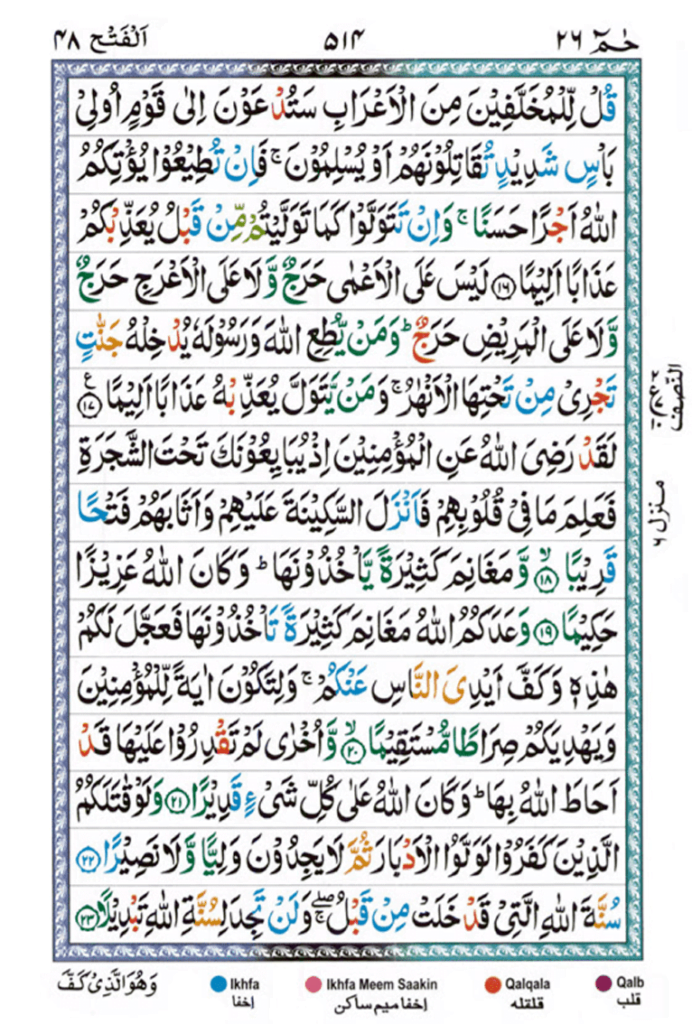 حٰمٓ ٢٦ ٥١٤ اَلْفَتْح ٤٨
قُلْ لِّلْمُخَلَّفِيْنَ مِنَ الْاَعْرَابِ سَتُدْعَوْنَ اِلٰى قَوْمٍ اُولِيْ
بَاْسٍ شَدِيْدٍ تُقَاتِلُوْنَهُمْ اَوْ يُسْلِمُوْنَ ۚ فَاِنْ تُطِيْعُوْا يُؤْتِكُمُ
اللّٰهُ اَجْرًا حَسَنًا ۚ وَاِنْ تَتَوَلَّوْا كَمَا تَوَلَّيْتُمْ مِّنْ قَبْلُ يُعَذِّبْكُمْ
عَذَابًا اَلِيْمًا ١٦ لَيْسَ عَلَى الْاَعْمٰى حَرَجٌ وَّلَا عَلَى الْاَعْرَجِ حَرَجٌ
وَّلَا عَلَى الْمَرِيْضِ حَرَجٌ ؕ وَمَنْ يُّطِعِ اللّٰهَ وَرَسُوْلَهٗ يُدْخِلْهُ جَنّٰتٍ
تَجْرِيْ مِنْ تَحْتِهَا الْاَنْهٰرُ ۚ وَمَنْ يَّتَوَلَّ يُعَذِّبْهُ عَذَابًا اَلِيْمًا ١٧ ع
النصف
لَقَدْ رَضِيَ اللّٰهُ عَنِ الْمُؤْمِنِيْنَ اِذْ يُبَايِعُوْنَكَ تَحْتَ الشَّجَرَةِ
فَعَلِمَ مَا فِيْ قُلُوْبِهِمْ فَاَنْزَلَ السَّكِيْنَةَ عَلَيْهِمْ وَاَثَابَهُمْ فَتْحًا
منزل ٦
قَرِيْبًا ۙ ١٨ وَّمَغَانِمَ كَثِيْرَةً يَّاْخُذُوْنَهَا ؕ وَكَانَ اللّٰهُ عَزِيْزًا
حَكِيْمًا ١٩ وَعَدَكُمُ اللّٰهُ مَغَانِمَ كَثِيْرَةً تَاْخُذُوْنَهَا فَعَجَّلَ لَكُمْ
هٰذِهٖ وَكَفَّ اَيْدِيَ النَّاسِ عَنْكُمْ ۚ وَلِتَكُوْنَ اٰيَةً لِّلْمُؤْمِنِيْنَ
وَيَهْدِيَكُمْ صِرَاطًا مُّسْتَقِيْمًا ۙ ٢٠ وَّاُخْرٰى لَمْ تَقْدِرُوْا عَلَيْهَا قَدْ
اَحَاطَ اللّٰهُ بِهَا ؕ وَكَانَ اللّٰهُ عَلٰى كُلِّ شَيْءٍ قَدِيْرًا ٢١ وَلَوْ قٰتَلَكُمُ
الَّذِيْنَ كَفَرُوْا لَوَلَّوُا الْاَدْبَارَ ثُمَّ لَا يَجِدُوْنَ وَلِيًّا وَّلَا نَصِيْرًا ٢٢
سُنَّةَ اللّٰهِ الَّتِيْ قَدْ خَلَتْ مِنْ قَبْلُ ۖۚ وَلَنْ تَجِدَ لِسُنَّةِ اللّٰهِ تَبْدِيْلًا ٢٣
وَهُوَ الَّذِيْ كَفَّ
Ikhfa Ikhfa Meem Saakin Qalqala Qalb
اِخفا اِخفا میم ساکن قلقله قلب